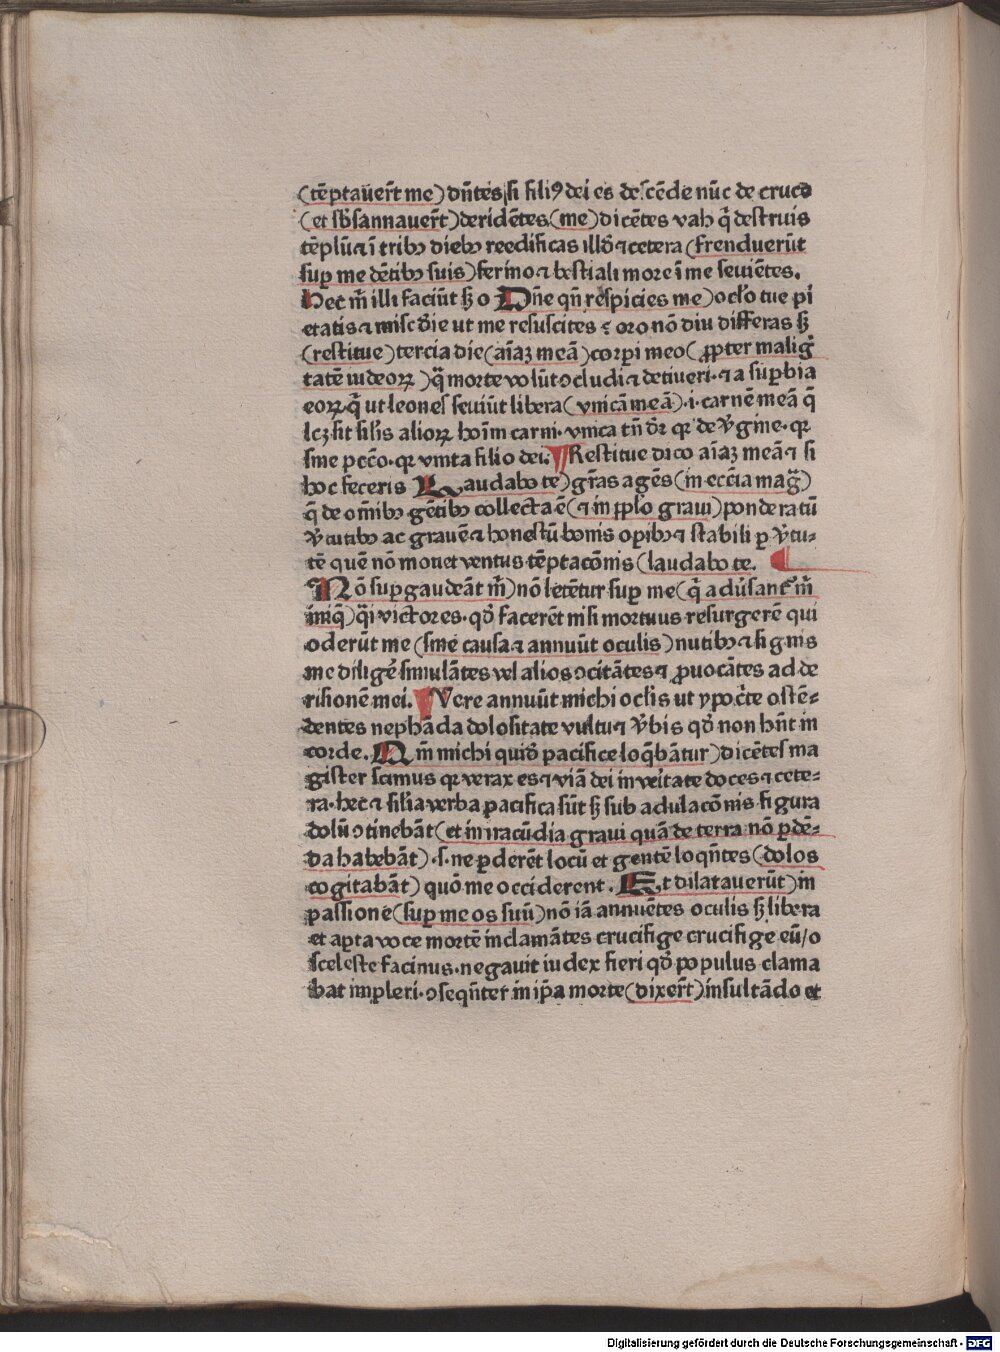 (tēptaūer̄t me) dn̄tes si filiꝰ dei es descēde nūc de cruce
(et sb̄sannauer̄t) deridētes (me) dicētes vah q̄ destruis
tēplū ⁊ ī tribꝫ diebꝫ reedificas illō ⁊ cetera (frenduerūt
suꝑ me dētibꝫ suis) ferino ⁊ bestiali more ī me seuiētes.
Hec m̄ illi faciūt sꝫ o Dn̄e qn̄ respicies me) oc̄lo tue pi
etatis ⁊ misc̄die ut me resuscites ⁊ oro nō diu differas sꝫ
(restitue) tercia die (aīaꝫ meā) corꝑi meo (ꝓpter maliḡ
tatē iudeoꝝ) q̄ morte volūt ↄcludi ⁊ detineri · ⁊ a suꝑbia
eoꝝ q̄ ut leones seuiūt libera (vnicā meā) · i · carnē meā q̄
lcꝫ sit silis alioꝝ hoīm carni · vnica tn̄ dr̄ qꝛ de v̄gine · qꝛ
sine pcc̄o · qꝛ vnita filio dei. Restitue dico aīaꝫ meā ⁊ si
hoc feceris Laudabo te) gr̄as agēs (in ecc̄ia maḡ)
q̄ de om̄ibꝫ gētibꝫ collecta ē (⁊ in pplo graui) ponderatū
v̄tutibꝫ ac grauē ⁊ honestū bonis oꝑibꝫ ⁊ stabili ꝑ v̄tu-
tē quē nō mouet ventus tēptacōnis (laudabo te.
Nō suꝑgaudeāt m̄) nō letētur suꝑ me (q̄ adūsant̄ m̄
iniq̄) q̄i victores · qd̄ facerēt nisi mortuus resurgerē qui
oderūt me (sine causa ⁊ annuūt oculis) nutibꝫ ⁊ signis
me diligē simulātes vel alios ↄcitātes ⁊ ꝓuocātes ad de
risionē mei. Vere annuūt michi oclis ut ypoc̄te ostē-
dentes nephāda dolositate vultu ⁊ v̄bis qd̄ non hn̄t in
corde. Nm̄ michi quid̄ pacifice loq̄bātur) dicētes ma
gister scimus qꝛ verax es ⁊ viā dei in veītate doces ⁊ cete-
ra · hec ⁊ silia verba pacifica sūt sꝫ sub adulacōnis figura
dolū ↄtinebāt (et in iracūdia graui quā de terra nō ꝑdē-
da habebāt) · s · ne ꝑderēt locū et gentē loqn̄tes (dolos
cogitabāt) quō me occiderent. Et dilatauerūt) in
passione (suꝑ me os suū) nō iā annuētes oculis sꝫ libera
et aꝑta voce mortē inclamātes crucifige crucifige eū/o
sceleste facinus · negauit iudex fieri qd̄ populus clama
bat impleri · ↄseqn̄ter in ip̄a morte (dixer̄t) insultādo et
Digitalisierung gefördert durch die Deutsche Forschungsgemeinschaft - DFG